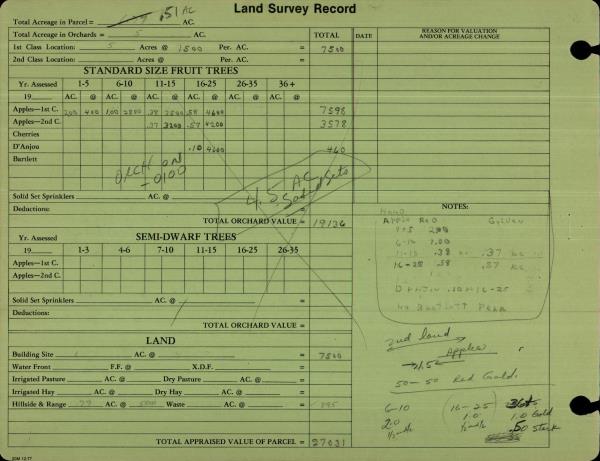 Land Survey Record
Total Acreage in Parcel = .51 AC AC.
Total Acreage in Orchards = 5 AC. TOTAL DATE REASON FOR VALUATION AND/OR ACREAGE CHANGE
1st Class Location: 5 Acres @ 1500 Per. AC. = 7500
2nd Class Location: Acres @ Per. AC. =
STANDARD SIZE FRUIT TREES
Yr. Assessed 1-5 6-10 11-15 16-25 26-35 36+
19 AC. @ AC. @ AC. @ AC. @ AC. @ AC. @ =
Apples—1st C. 2.00 400 1.00 2800 .38 3500 .58 4600 7598
Apples—2nd C. .37 3200 .57 4200 3578
Cherries
D'Anjou .10 4600 460
Bartlett
ORCH ON
-0100
4.5 AC
Solid Sets
Solid Set Sprinklers AC. @ =
Deductions: =
TOTAL ORCHARD VALUE = 19136
SEMI-DWARF TREES
Yr. Assessed
19 1-3 4-6 7-10 11-15 16-25 26-35
AC. @ AC. @ AC. @ AC. @ AC. @ AC. @
Apples—1st C.
Apples—2nd C.
Solid Set Sprinklers AC. @ =
Deductions:
TOTAL ORCHARD VALUE =
LAND
Building Site AC. @ = 7500
Water Front F.F. @ X.D.F. =
Irrigated Pasture AC. @ Dry Pasture AC. @ =
Irrigated Hay AC. @ Dry Hay AC. @ =
Hillside & Range .79 AC. @ 500 Waste AC. @ = 395
TOTAL APPRAISED VALUE OF PARCEL = 27031
NOTES:
Apple Red Golden
1-5 2.00
6-10 1.00
11-15 .38 .37
16-25 .58 .57
D'Anjou .10 16-25
No Bartlett Pear
2nd land
Apples
50-50 Red Gold.
6-10 16-25 36+
2.0 1.0 1.0 Gold
.50